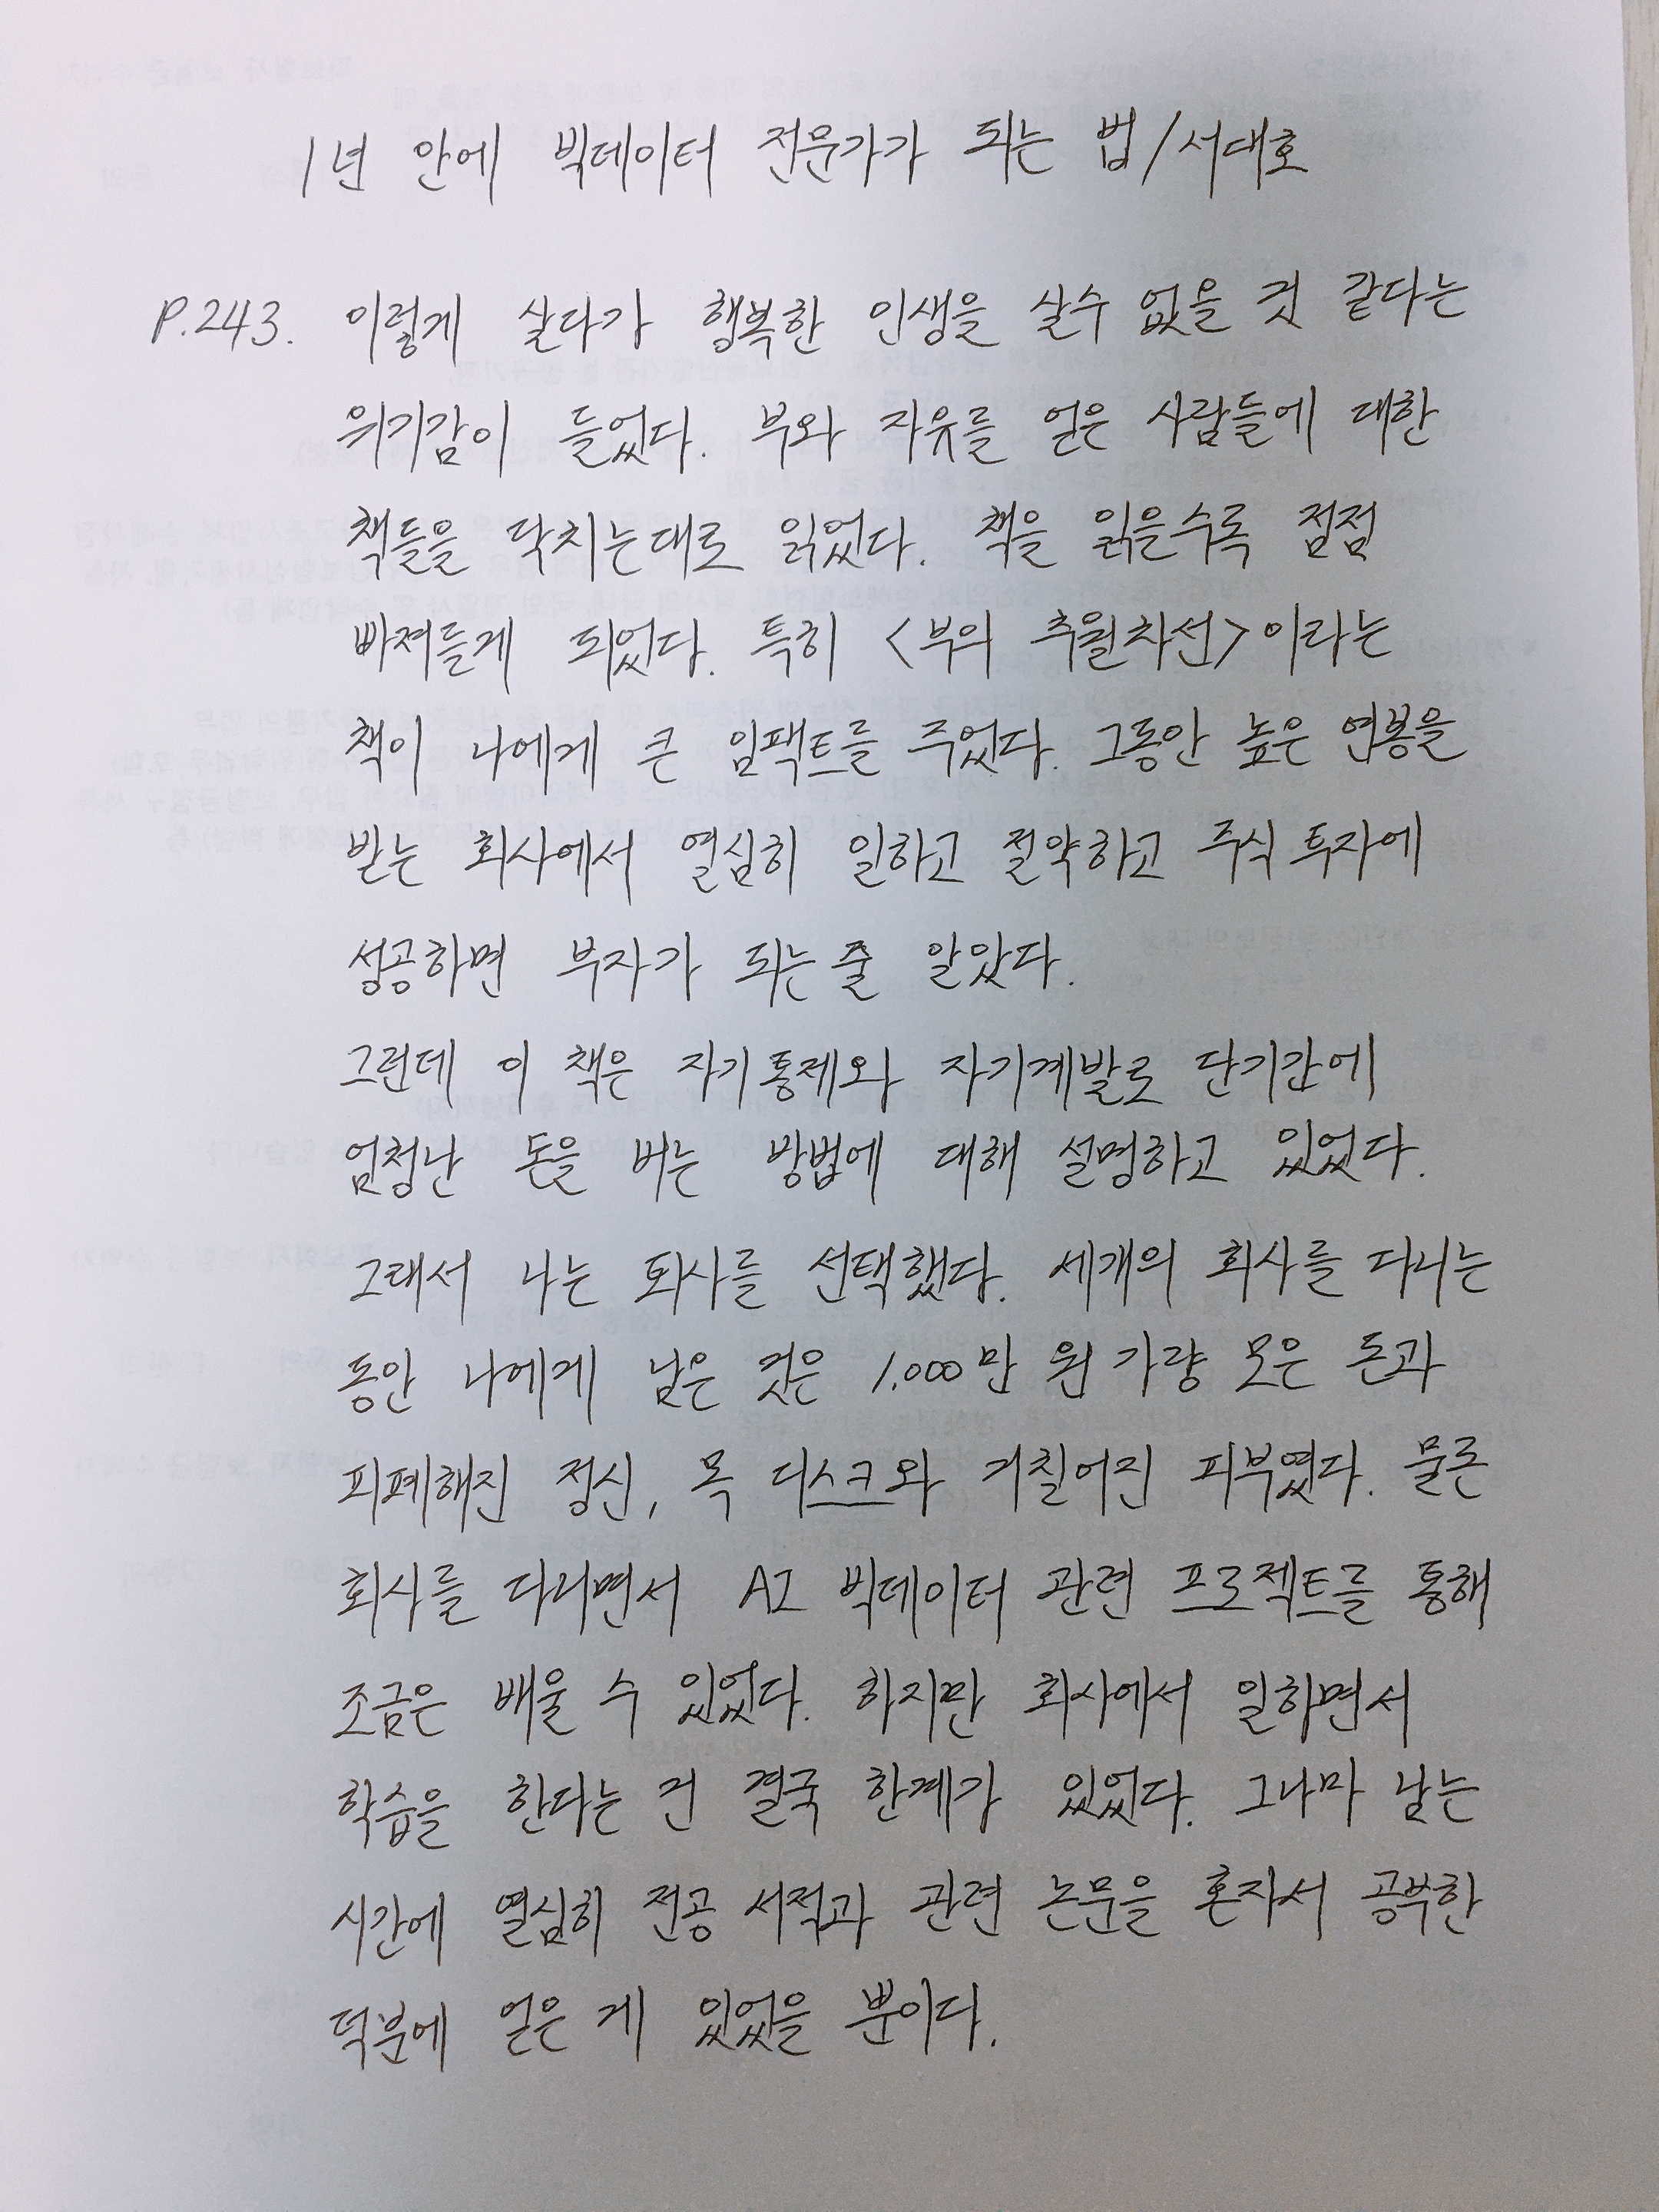 1년 안에 빅데이터 전문가가 되는 법/서대호
P.243. 이렇게 살다가 행복한 인생을 살수 없을 것 같다는
위기감이 들었다. 부와 자유를 얻은 사람들에 대한
책들을 닥치는대로 읽었다. 책을 읽을수록 점점
빠져들게 되었다. 특히 <부의 추월차선>이라는
책이 나에게 큰 임팩트를 주었다. 그동안 높은 연봉을
받는 회사에서 열심히 일하고 절약하고 주식 투자에
성공하면 부자가 되는 줄 알았다.
그런데 이 책은 자기통제와 자기계발로 단기간에
엄청난 돈을 버는 방법에 대해 설명하고 있었다.
그래서 나는 퇴사를 선택했다. 세개의 회사를 다니는
동안 나에게 남은 것은 1.000만 원 가량 모은 돈과
피폐해진 정신, 목 디스크와 거칠어진 피부였다. 물론
회사를 다니면서 AI 빅데이터 관련 프로젝트를 통해
조금은 배울 수 있었다. 하지만 회사에서 일하면서
학습을 한다는 건 결국 한계가 있었다. 그나마 남는
시간에 열심히 전공 서적과 관련 논문을 혼자서 공부한
덕분에 얻은 게 있었을 뿐이다.